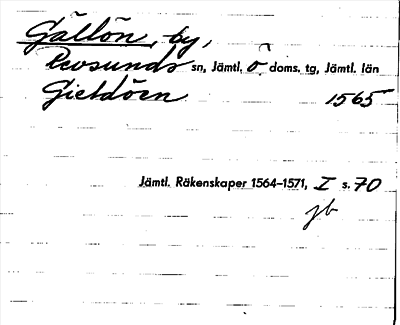 Gällön, by,
Revsunds sn, Jämtl. Ö doms. tg, Jämtl. län
Gieldöen 1565
Jämtl. Räkenskaper 1564–1571, I s. 70
jb